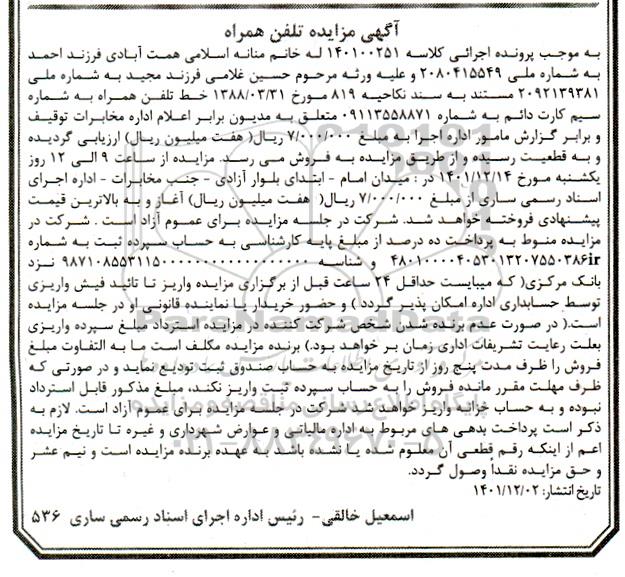 آگهی مزایده تلفن همراه
به موجب پرونده اجرائی کلاسه ۱۴۰۱۰۰۲۵۱ له خانم منانه اسلامی همت آبادی فرزند احمد
به شماره ملی ۲۰۸۰۴۱۵۵۴۹ و علیه ورثه مرحوم حسین غلامی فرزند مجید به شماره ملی
۲۰۹۲۱۳۹۳۸۱ مستند به سند نکاحیه ۸۱۹ مورخ ۱۳۸۸/۰۳/۳۱ خط تلفن همراه به شماره
سیم کارت دائم به شماره ۰۹۱۱۳۵۵۸۸۷۱ متعلق به مدیون برابر اعلام اداره مخابرات توقیف
و برابر گزارش مامور اداره اجرا به مبلغ ۷/۰۰۰/۰۰۰ ریال( هفت میلیون ریال) ارزیابی گردیده
و به قطعیت رسیده و از طریق مزایده به فروش می رسد. مزایده از ساعت ۹ الی ۱۲ روز
یکشنبه مورخ ۱۴۰۱/۱۲/۱۴ در : میدان امام - ابتدای بلوار آزادی - جنب مخابرات - اداره اجرای
اسناد رسمی ساری از مبلغ ۷/۰۰۰/۰۰۰ ریال( هفت میلیون ریال) آغاز و به بالاترین قیمت
پیشنهادی فروخته خواهد شد. شرکت در جلسه مزایده برای عموم آزاد است . شرکت در
مزایده منوط به پرداخت ده درصد از مبلغ پایه کارشناسی به حساب سپرده ثبت به شماره
و شناسه نزد
بانک مرکزی( که میبایست حداقل ۲۴ ساعت قبل از برگزاری مزایده واریز تا تائید فیش واریزی
توسط حسابداری اداره امکان پذیر گردد ) و حضور خریدار یا نماینده قانونی او در جلسه مزایده
است.( در صورت عدم برنده شدن شخص شرکت کننده در مزایده استرداد مبلغ سپرده واریزی
بعلت رعایت تشریفات اداری زمان بر خواهد بود.) برنده مزایده مکلف است ما به التفاوت مبلغ
فروش را ظرف مدت پنج روز از تاریخ مزایده به حساب صندوق ثبت تودیع نماید و در صورتی که
ظرف مهلت مقرر مانده فروش را به حساب سپرده ثبت واریز نکند، مبلغ مذکور قابل استرداد
نبوده و به حساب خزانه واریز خواهد شد شرکت در جلسه مزایده برای عموم آزاد است. لازم به
ذکر است پرداخت بدهی های مربوط به اداره مالیاتی و عوارض شهرداری و غیره تا تاریخ مزایده
اعم از اینکه رقم قطعی آن معلوم شده یا نشده باشد به عهده برنده مزایده است و نیم عشر
و حق مزایده نقداً وصول گردد.
تاریخ انتشار: ۱۴۰۱/۱۲/۰۲
اسمعیل خالقی- رئیس اداره اجرای اسناد رسمی ساری ۵۳۶
ParsNamadData